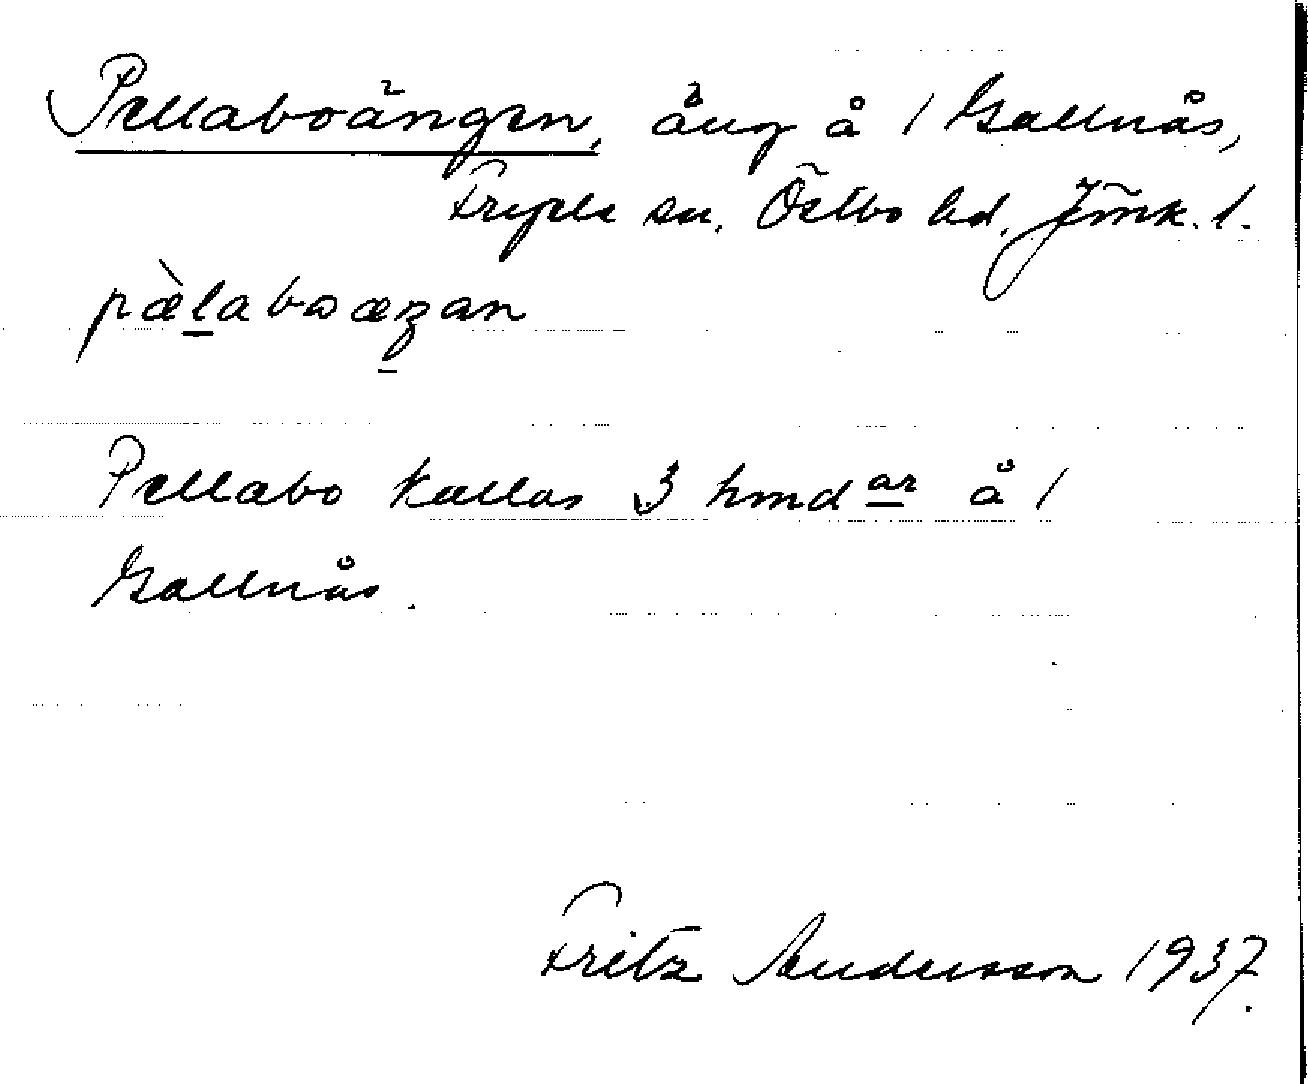 Pellaboängen, äng å 1 Gallnås,
Fryele sn. Östbo hd. Jmk. l.
pæ̀l̲abɷæŋ̲an
Pellabo kallas 3 hmd ar å 1
Gallnås.
Fritz Andersson 1937.